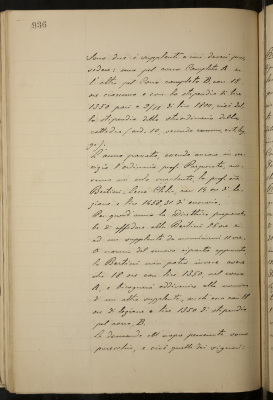 936
Sono due i supplenti a cui dovrà prov
vedere: uno pel corso Completo A. e
l'altro pel Corso completo B con 18
ore ciascuno e con lo stipendio di lire
1350 pari a di lire 1800, cioè del
lo stipendio dello straordinario della
cattedra, (art. 10, secondo comma,
L'anno passato, essendo ancora in ser
vizio l'ordinario prof.
aveva un solo supplente, la prof.ssa
Bertini Clelia, con 15 ore di le
zione e lire 1458,31 di onorario.
Per quest'anno la Direttrice propone
di affidare alla Bertini 15 ore e
ad un supplente da nominarsi 11 ore.
A norma del nuovo riparto appunto
la Bertini non potrà invece avere
che 18 ore con lire 1350, nel corso
A, e bisognerà addivenire alla nomina
di un altro supplente, anche con 18
ore di lezione e lire 1350 di stipendio
pel corso B.
Le domande all'uopo pervenute sono
parecchie, e cioè quelle dei signori: